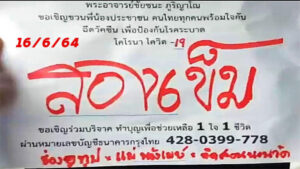 พระอาจารย์ชัยชนะ ภูริญาโณ
ขอเชิญชวนพี่น้องประชาชน คนไทยทุกคนพร้อมใจกัน
16/6/64 ฉีดวัคซีน เพื่อป้องกันโรคระบาด
โคโรนา โควิด -19
สองเข็ม
ขอเชิญร่วมบริจาค ทำบุญเพื่อช่วยเหลือ 1 ใจ 1 ชีวิต
ผ่านหมายเลขบัญชีธนาคารกรุงไทย 428-0399-778